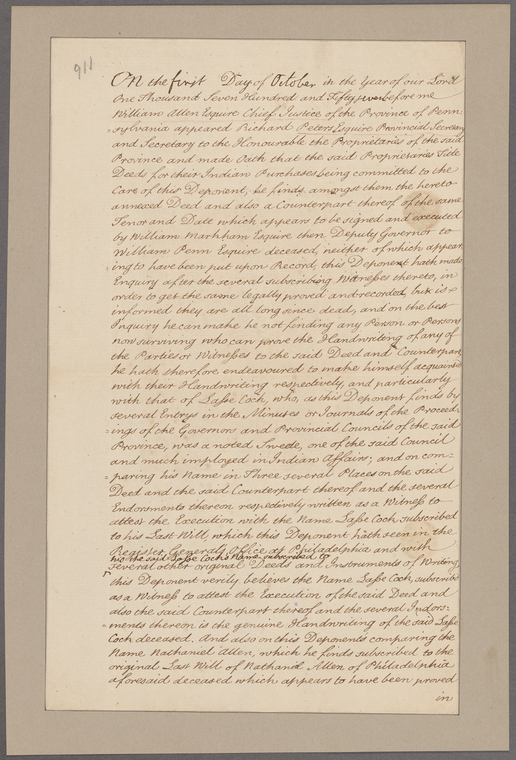 911
ON the first Day of October in the Year of our Lord
One Thousand Seven Hundred and Fifty seven before me
William Allen Esquire Chief Justice of the Province of Penn-
sylvania appeared Richard Peters Esquire Provincial Secretary
and Secretary to the Honourable the Proprietaries of the said
Province and made Oath that the said Proprietaries Title
Deeds for their Indian Purchases being committed to the
Care of this Deponent, he finds amongst them the hereto
annexed Deed and also a Counterpart thereof of the same
Tenor and Date which appears to be signed and executed
by William Markham Esquire then Deputy Governor to
William Penn Esquire deceased, neither of which appear-
ing to have been put upon Record, this Deponent hath made
Enquiry after the several subscribing Witnesses thereto, in
order to get the same legally proved and recorded, but is
informed they are all long since dead, and on the best
Inquiry he can make he not finding any Person or Persons
now surviving who can prove the Handwriting of any of
the Parties or Witnesses to the said Deed and Counterpart
he hath therefore endeavoured to make himself acquainted
with their Handwriting respectively, and particularly
with that of Lasse Cock, who, as this Deponent finds by
several Entrys in the Minutes or Journals of the Proceed-
ings of the Governors and Provincial Councils of the said
Province, was a noted Swede, one of the said Council
and much imployed in Indian Affairs; and on com-
paring his Name in Three several Places on the said
Deed and the said Counterpart thereof and the several
Endorsments thereon respectively written as a Witness to
attest the Execution with the Name Lasse Cock subscribed
to his Last Will which this Deponent hath seen in the
Register Generals Office at Philadelphia and with
his the said Lasse Cock's Name subscribed to
several other original Deeds and Instruments of Writing
this Deponent verily believes the Name Lasse Cock, subscribed
as a Witness to attest the Execution of the said Deed and
also the said Counterpart thereof and the several Indors-
ments thereon is the genuine Handwriting of the said Lasse
Cock deceased. And also on this Deponents comparing the
Name Nathaniel Allen, which he finds subscribed to the
original Last Will of Nathaniel Allen of Philadelphia
aforesaid deceased which appears to have been proved
in